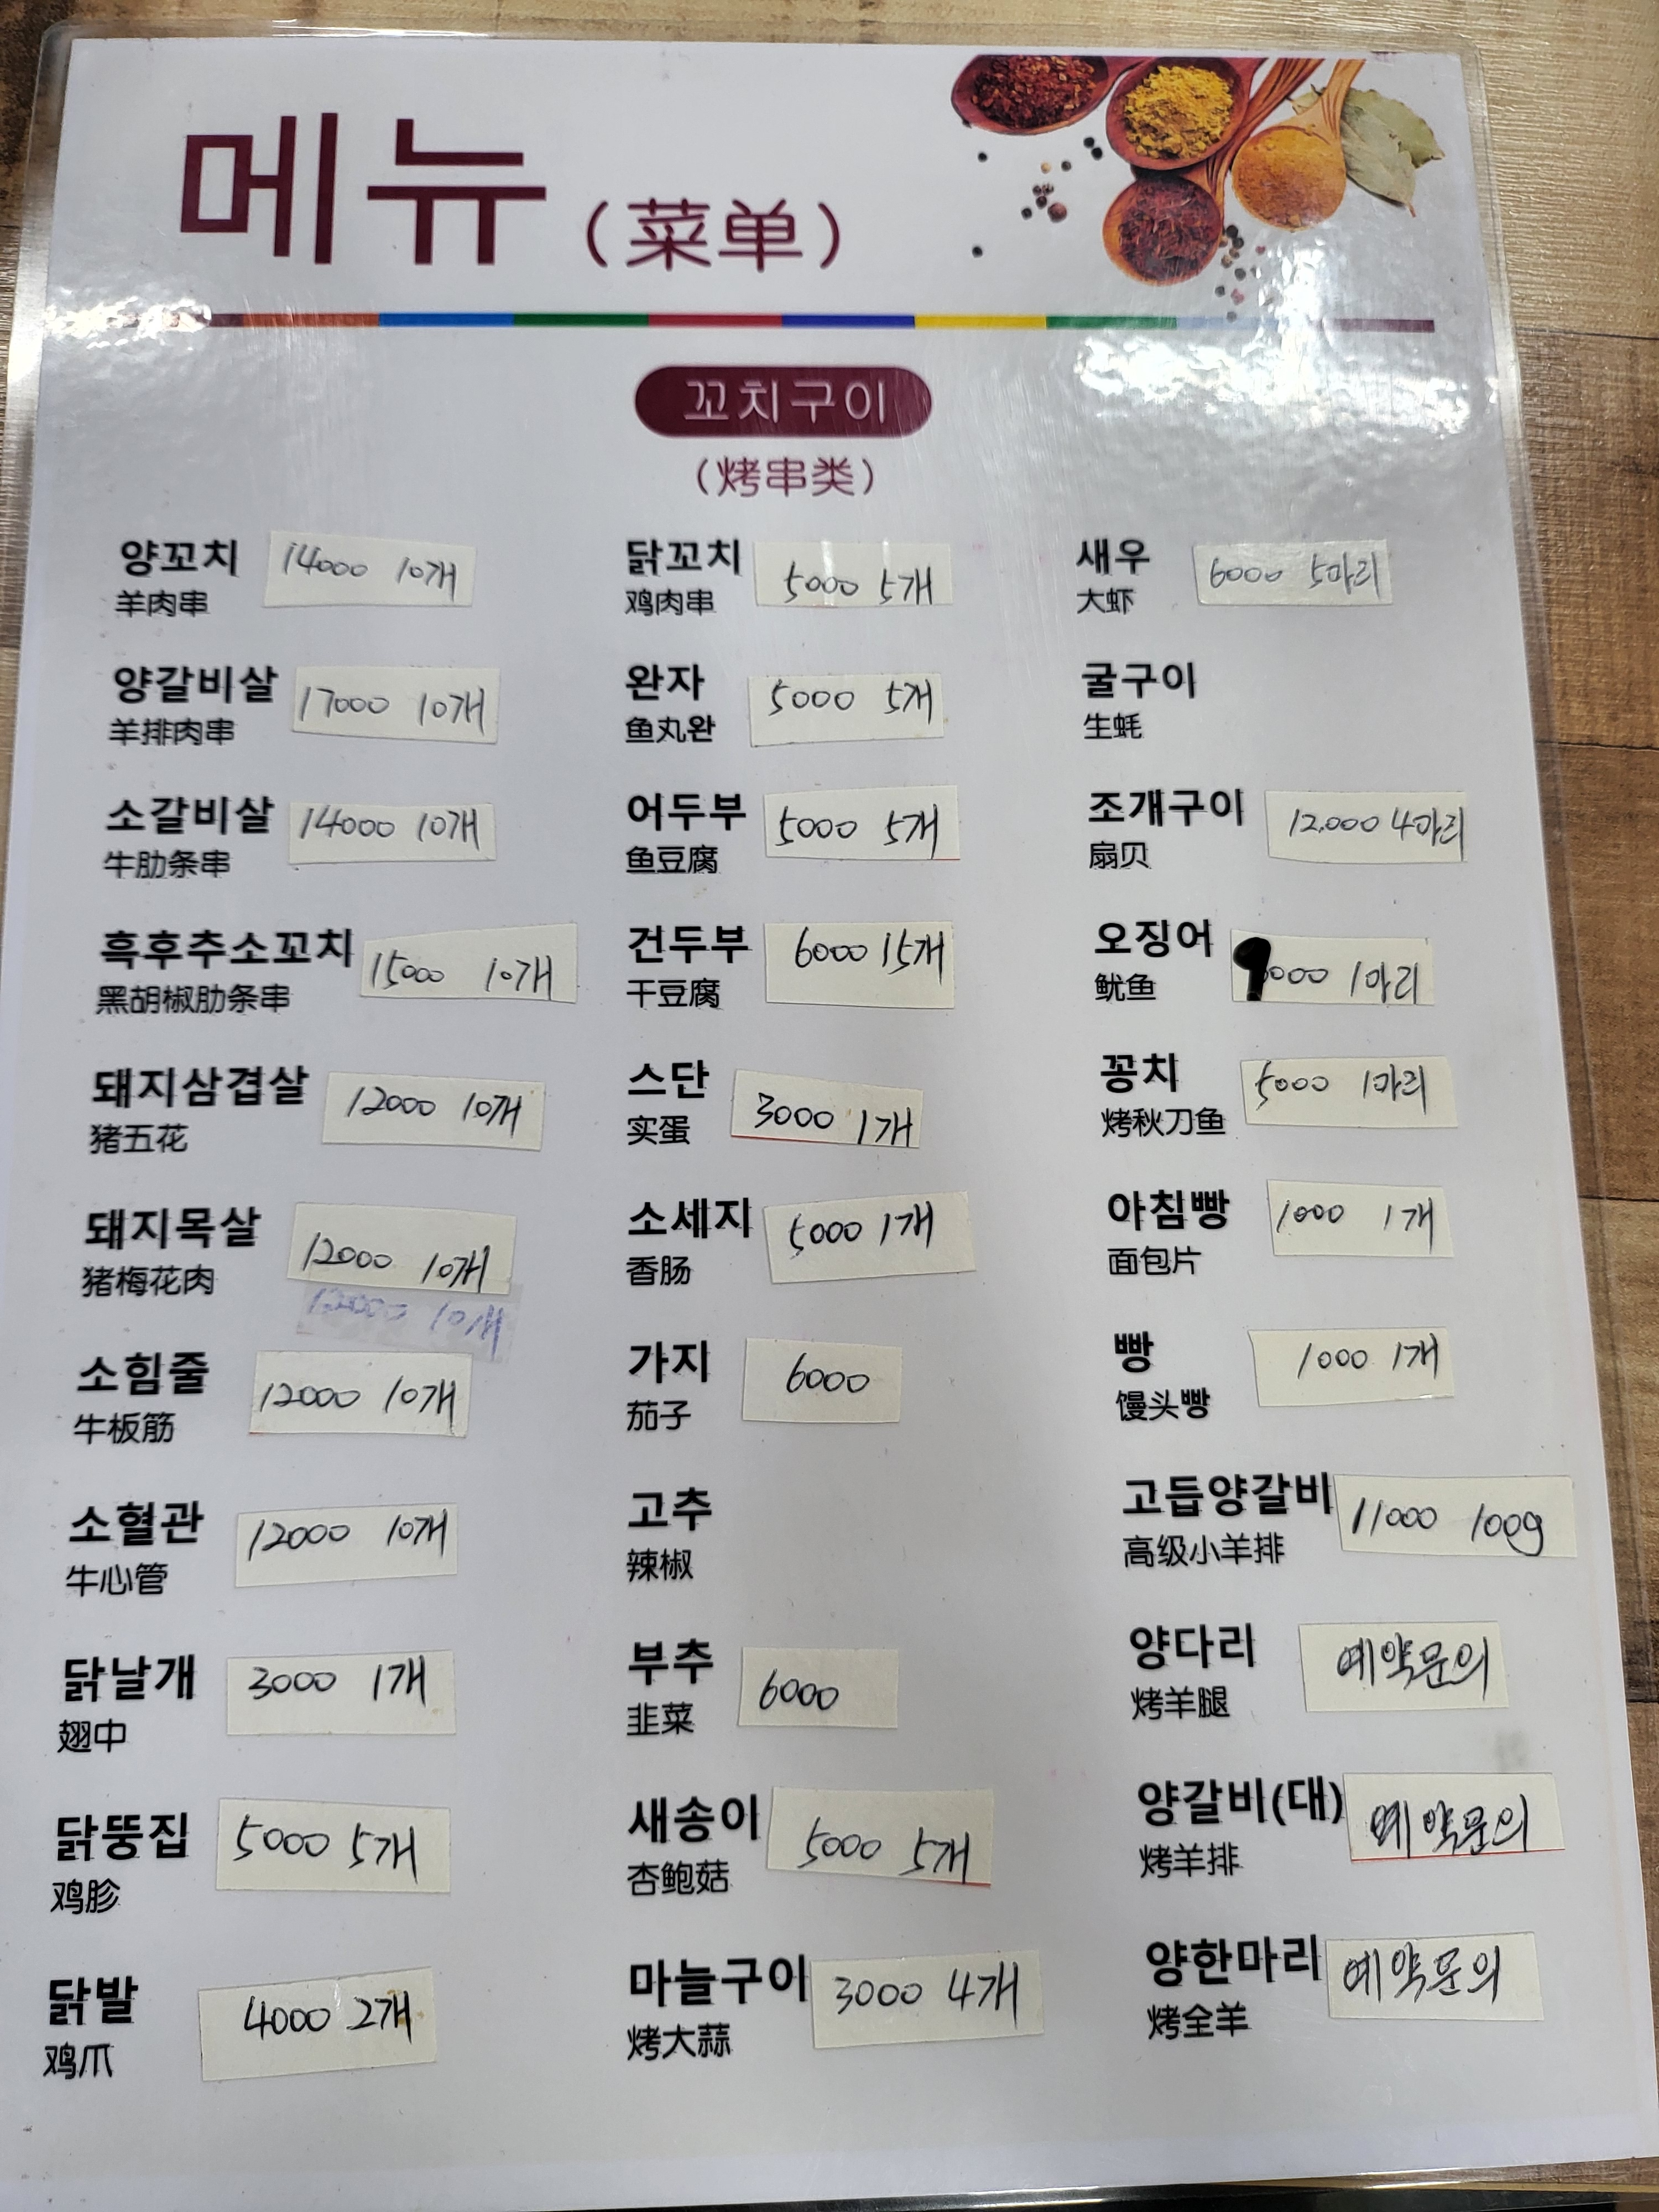 메뉴 (菜单)
꼬치구이
(烤串类)
양꼬치 14000 10개
羊肉串
양갈비살 17000 10개
羊排肉串
소갈비살 14000 10개
牛肋条串
흑후추소꼬치 15000 10개
黑胡椒肋条串
돼지삼겹살 12000 10개
猪五花
돼지목살 12000 10개
猪梅花肉
12000 10개
소힘줄 12000 10개
牛板筋
소혈관 12000 10개
牛心管
닭날개 3000 1개
翅中
닭똥집 5000 5개
鸡胗
닭발 4000 2개
鸡爪
닭꼬치 5000 5개
鸡肉串
완자 5000 5개
鱼丸완
어두부 5000 5개
鱼豆腐
건두부 6000 15개
干豆腐
스단 3000 1개
实蛋
소세지 5000 1개
香肠
가지 6000
茄子
고추
辣椒
부추 6000
韭菜
새송이 5000 5개
杏鲍菇
마늘구이 3000 4개
烤大蒜
새우 6000 5마리
大虾
굴구이
生蚝
조개구이 12,000 4마리
扇贝
오징어 9000 1마리
鱿鱼
꽁치 5000 1마리
烤秋刀鱼
아침빵 1000 1개
面包片
빵 1000 1개
馒头빵
고듭양갈비 11000 100g
高级小羊排
양다리 예약문의
烤羊腿
양갈비(대) 예약문의
烤羊排
양한마리 예약문의
烤全羊